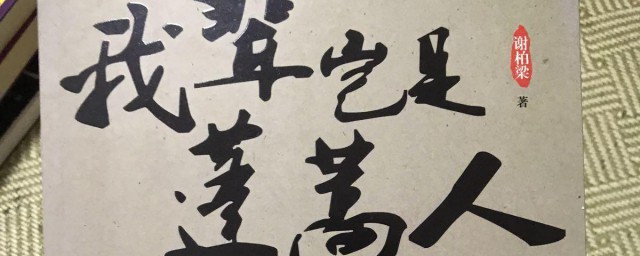 我辈岂是
蓬蒿人
谢柏梁
著